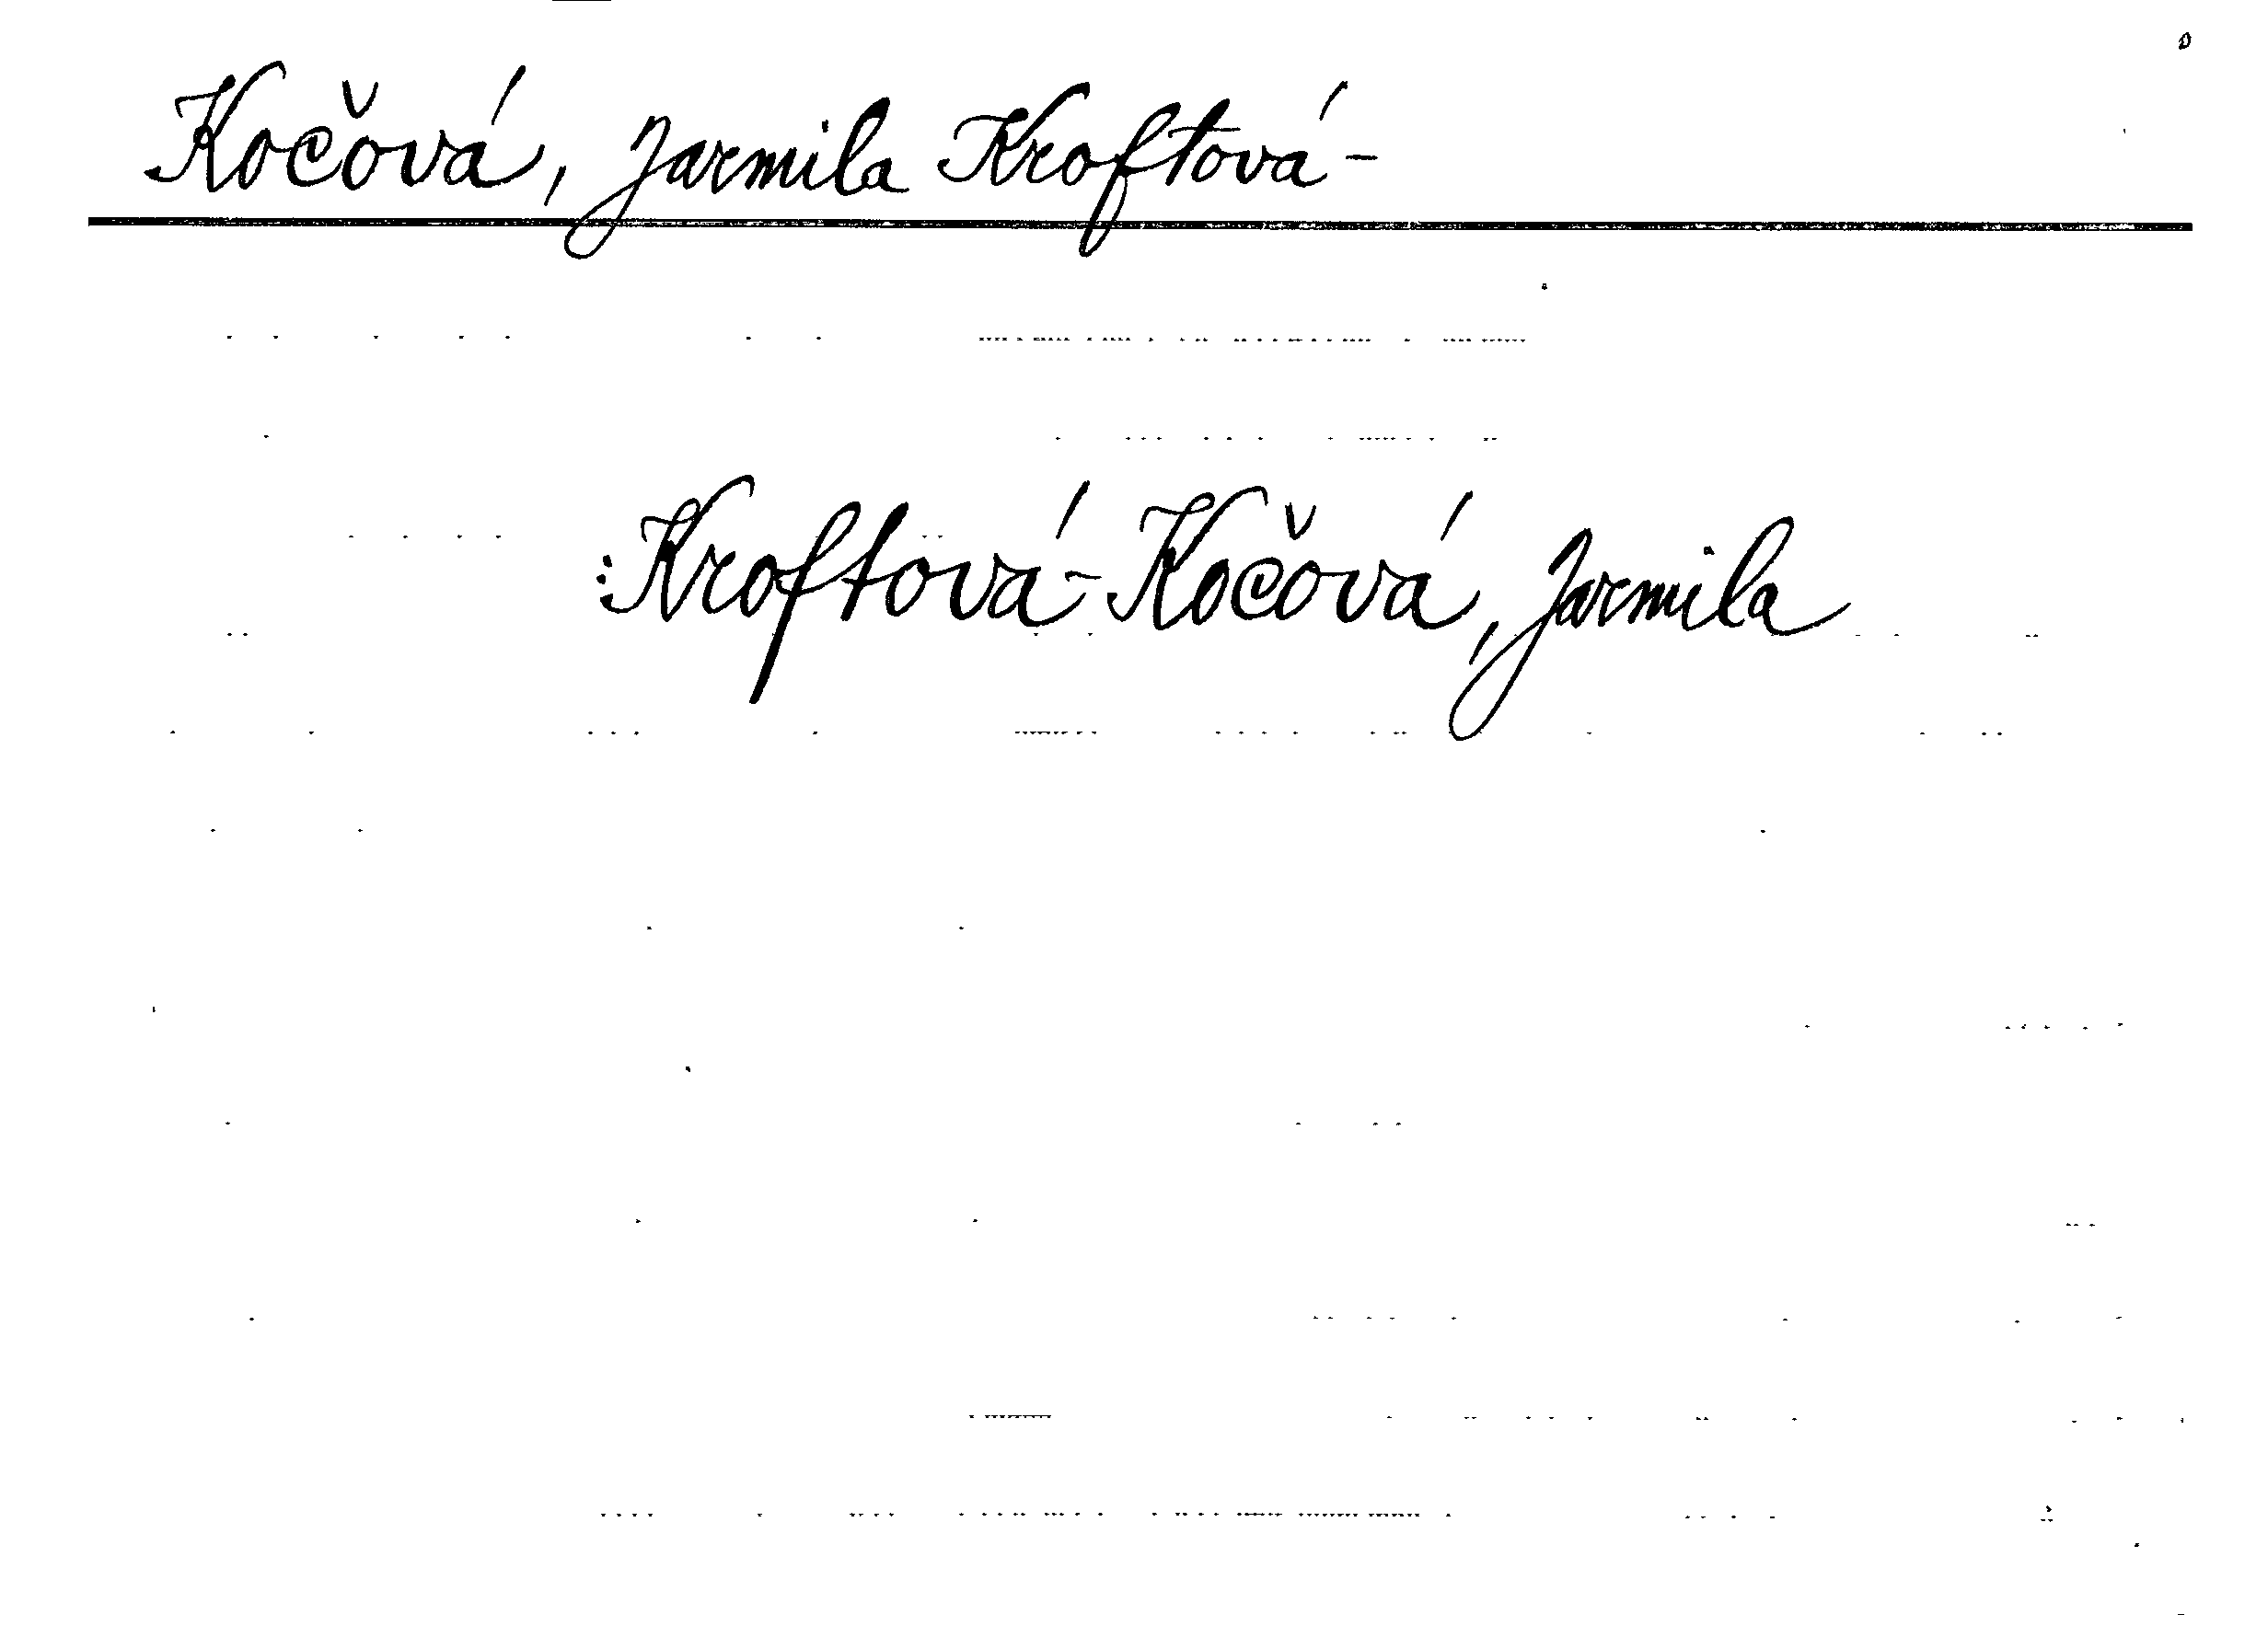 Kočová, Jarmila Kroftová-
:Kroftová-Kočová, Jarmila